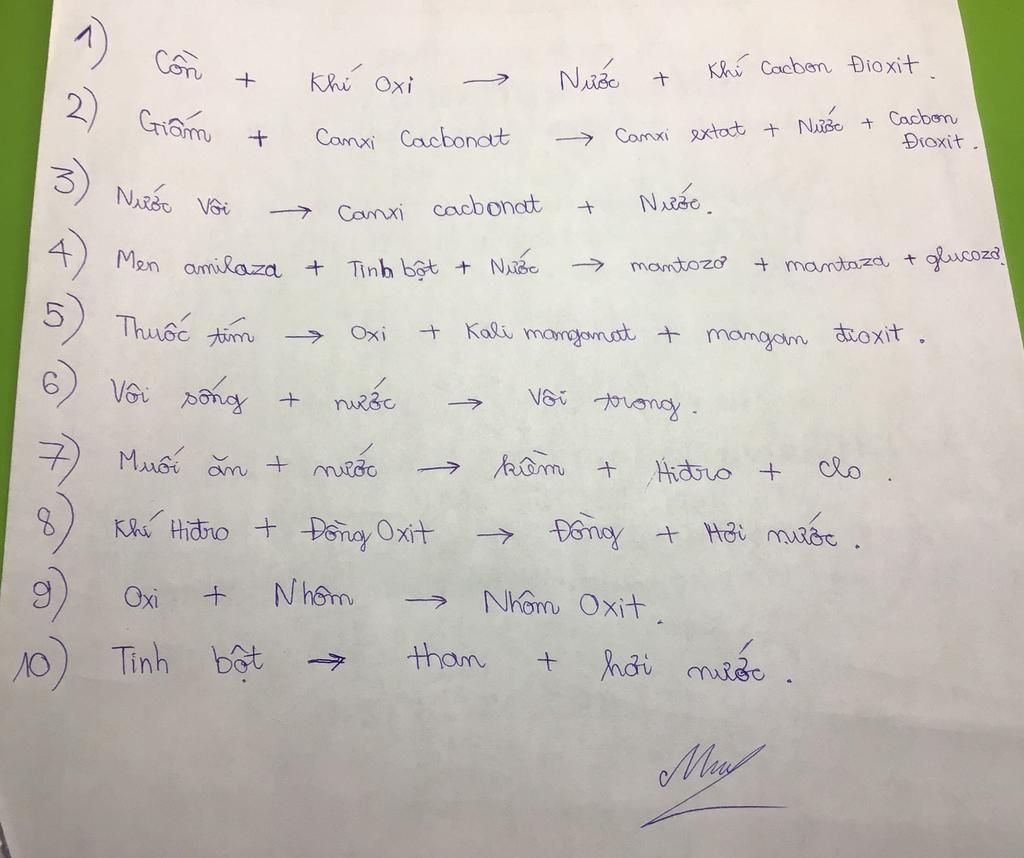 1) Cồn + Khí Oxi → Nước + Khí Cacbon Đioxit.
2) Giấm + Canxi Cacbonat → Canxi extat + Nước + Cacbon Đioxit.
3) Nước Vôi → Canxi cacbonat + Nước.
4) Men amilaza + Tinh bột + Nước → mantozơ + mantaza + glucozơ.
5) Thuốc tím → Oxi + Kali manganat + mangan đioxit.
6) Vôi sống + nước → Vôi trong.
7) Muối ăn + nước → kiềm + Hiđro + clo.
8) Khí Hiđro + Đồng Oxit → Đồng + Hơi nước.
9) Oxi + Nhôm → Nhôm Oxit.
10) Tinh bột → than + hơi nước.